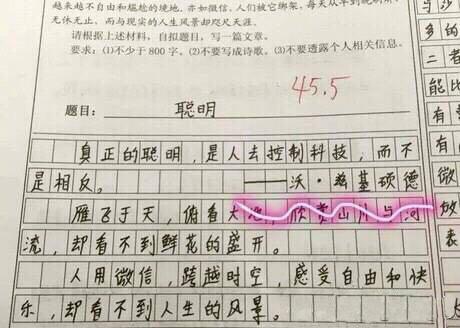 越来越不自由和尴尬的境地,亦如微信,人们被它绑架,每天从早到晚刷屏,
无休无止,而与现实的人生风景却咫尺天涯。
请根据上述材料,自拟题目,写一篇文章。
要求:(1)不少于800字。(2)不要写成诗歌。(3)不要透露个人相关信息。
45.5
题目: 聪明
真正的聪明,是人去控制科技,而不
是相反。 ——沃·兹基硕德
雁飞于天,俯看大地,欣赏山川与河
流,却看不到鲜花的盛开。
人用微信,跨越时空,感受自由和快
乐,却看不到人生的风景。
与沙
多的
能比
有
有
微
放
表